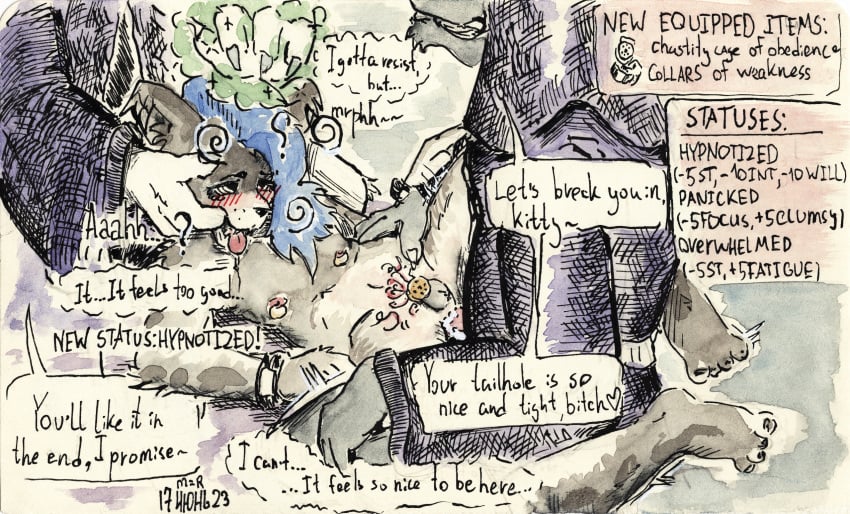 I gotta resist,
but...
mrphh~~
NEW EQUIPPED ITEMS:
chastity cage of obedience
COLLARS of weakness
STATUSES:
HYPNOTIZED
(-5ST, -10INT, -10WILL)
PANICKED
(-5FOCUS, +5CLUMSY)
OVERWHELMED
(-5ST, +5FATIGUE)
Let's breck you in,
kitty~
?
?
Aaahh...
It...It feels too good...
NEW STATUS: HYPNOTIZED!
Your tailhole is so
nice and tight, bitch♡
You'll like it in
the end, I promise~
I can't...
...It feels so nice to be here...
M=R
17 ИЮНЬ 23